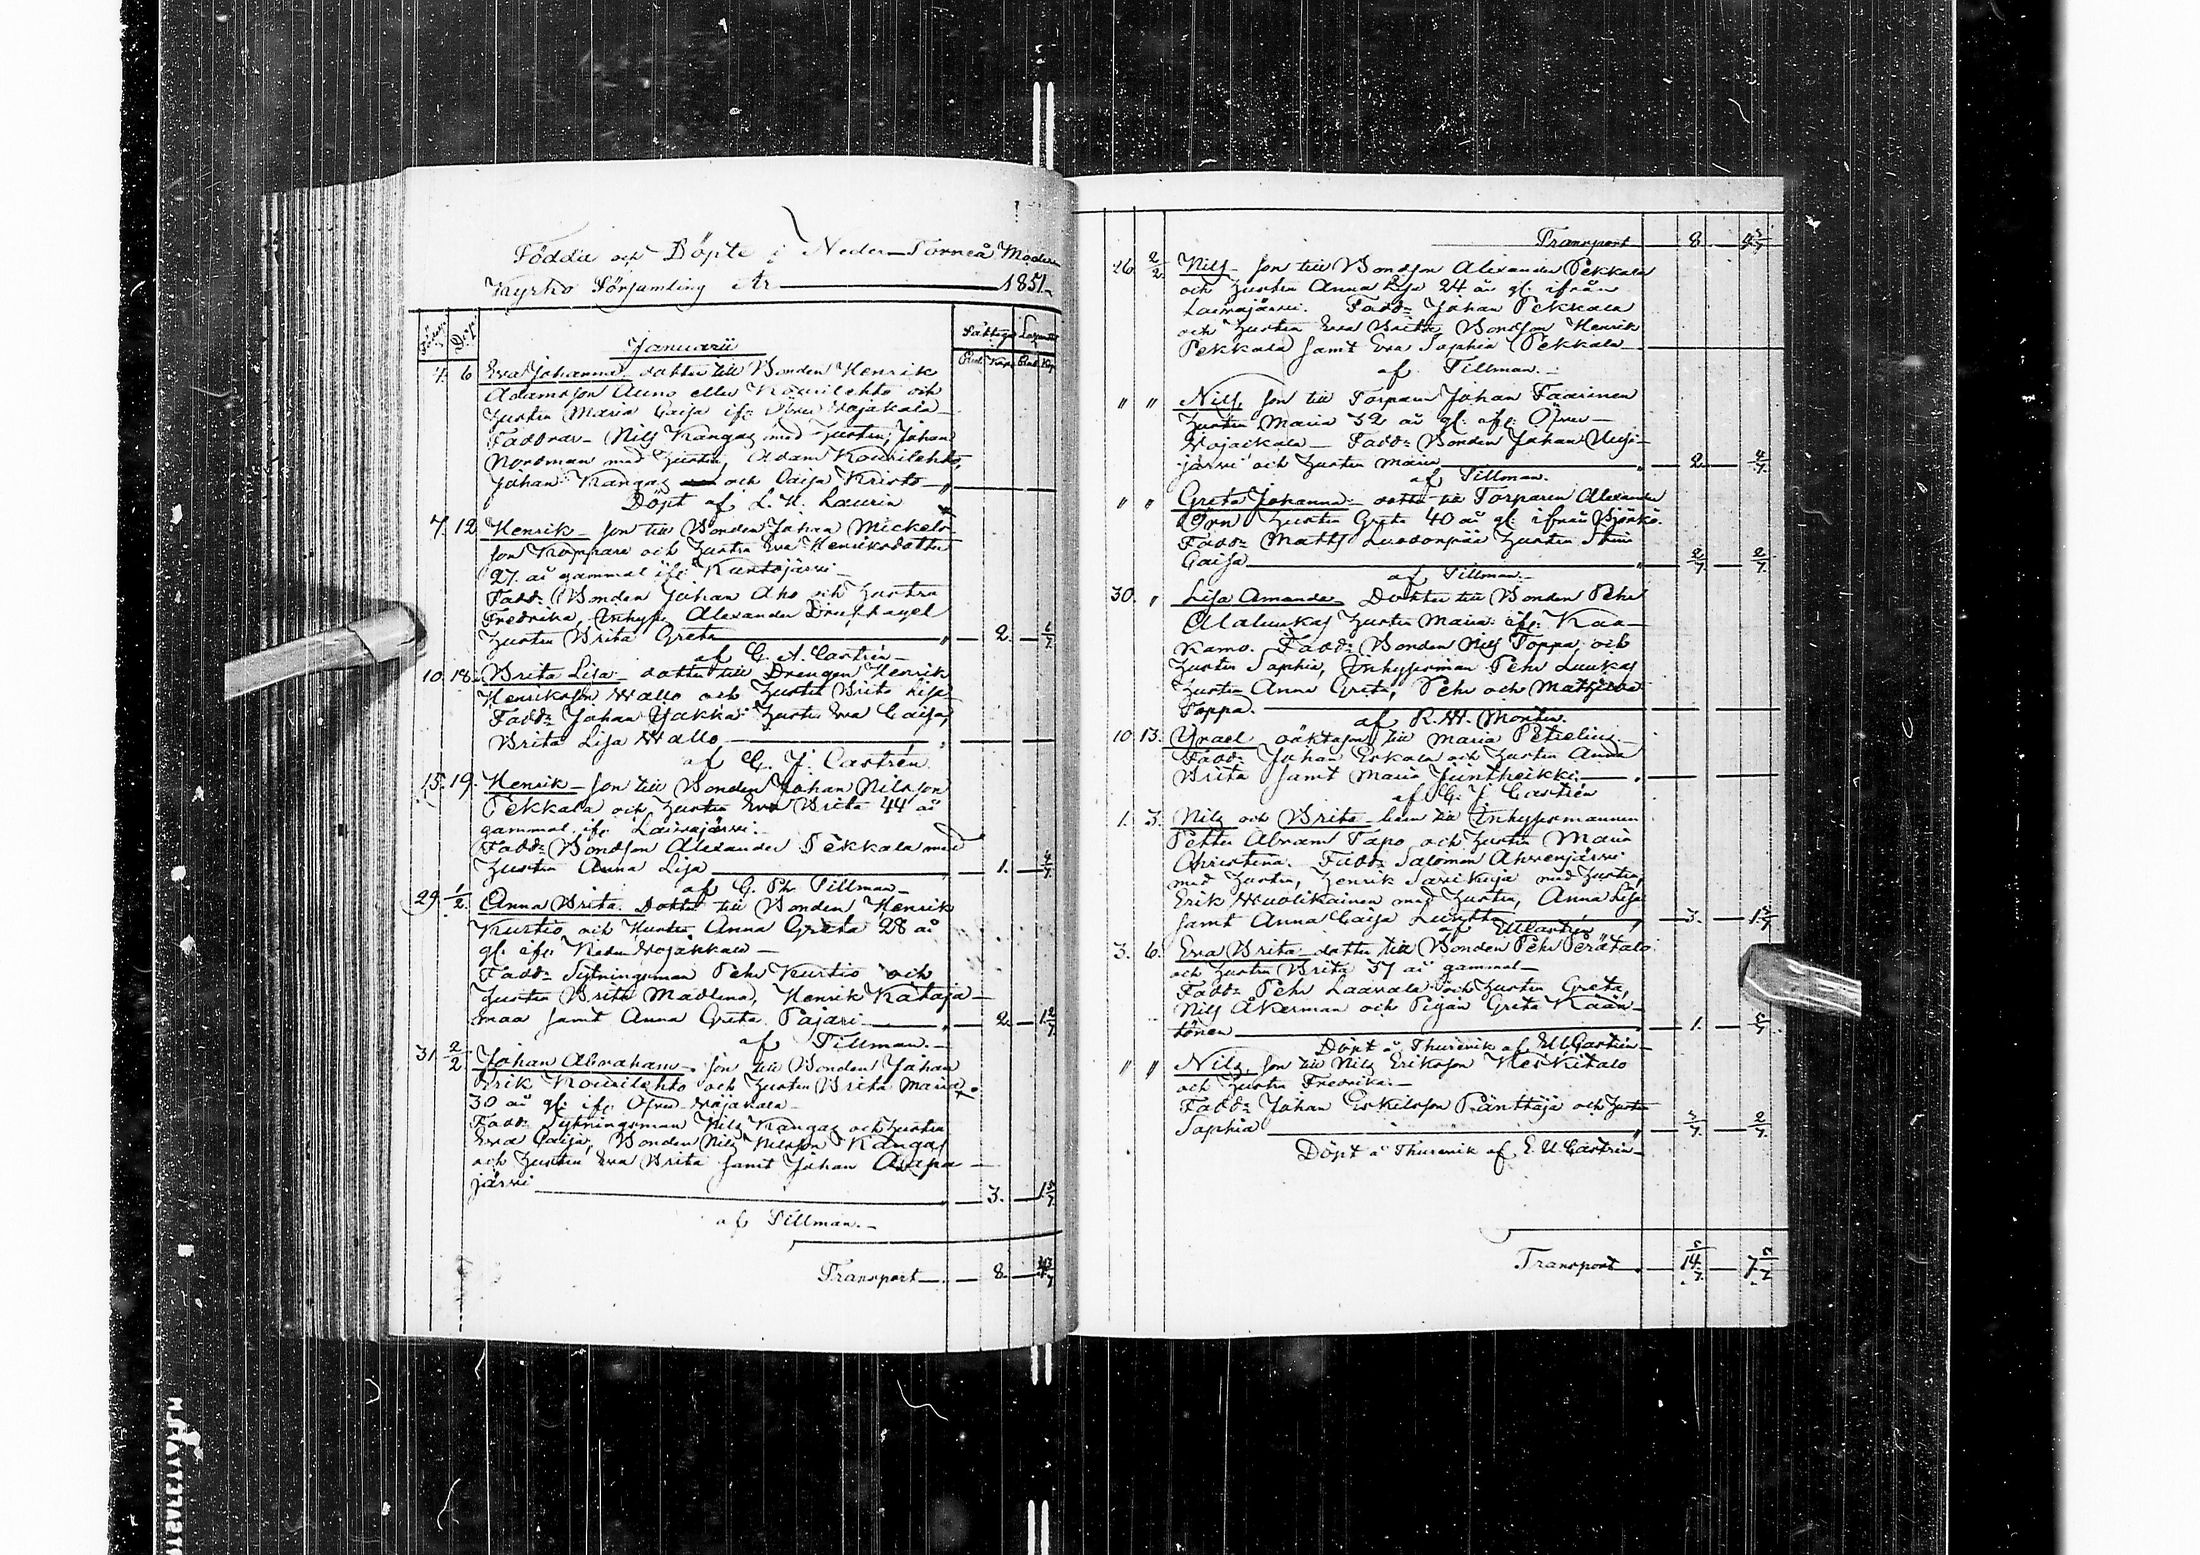 Födda och Döpte i Neder-Torneå Moder
Kyrko Församling År 1851.
Födelse Döpt Fattige Lazarett
Rub. Kop. Rub. Kop.
Januarii
4. 6 Eva Johanna dotter till Bonden Henrik
Adamsson Auno eller Kourilehto och
hustru Maria Caisa ifr. Öfver Wojakala
Faddrar Nils Kangas med hustru, Johan
Nordman med hustru, Adam Kourilehto,
Johan Kangas och Caisa Kristo
Döpt af L. H. Laurin
7. 12 Henrik son till Bonden Johan Mickels
son Koppari och hustru Eva Henriksdotter
27 år gammal ifr. Kuntojärvi
Fadd: Bonden Johan Aho och hustru
Fredrika, Inhys. Alexander Drufhagel
hustru Brita Greta 2. 6/7
af G. A. Castrén
10. 18. Brita Lisa dotter till Drengen Henrik
Henriksson Wallo och hustru Brita Lisa
Fadd: Johan Yakka hustru Eva Caisa,
Brita Lisa Wallo
af G. J. Castrén
15. 19. Henrik son till Bonden Johan Nilsson
Pekkala och hustru Eva Brita 44 år
gammal ifr. Laivajärvi.
Fadd: Bondson Alexander Pekkala med
hustru Anna Lisa 1. 4/7
af G. Ph. Tillman
29. 1/2. Anna Brita Dotter till Bonden Henrik
Kurtio och Hustru Anna Greta 28 år
gl. ifr. Neder Wojakkala
Fadd: Sytningsman Pehr Kurtio och
hustru Brita Madlena, Henrik Kataja
maa samt Anna Greta Pajari 2. 1 2/7
af Tillman.
31. 2/2 Johan Abraham son till Bonden Johan
Erik Kourilehto och hustru Brita Maria
30 år gl. ifr. Öfver Wojakala
Fadd: Sytningsman Nils Kangas och hustru
Eva Caisa, Bonden Nils Nilsson Kangas
och hustru Eva Brita samt Johan Arapa
järvi 3. 1 5/7
af Tillman.
Transport 8.
Transport 8
26 2/2. Nils son till Bondson Alexander Pekkala
och hustru Anna Lisa 24 år gl. ifrån
Laivajärvi. Fadd: Johan Pekkala
och hustru Eva Brita, Bondson Henrik
Pekkala samt Eva Sophia Pekkala
af Tillman.
" " Nils, son till Torparn Johan Taarinen
hustru Maria 32 år gl. ifr. Öfver
Wojackala Fadd: Bonden Johan
järvi och hustru Maria 2. 4/7.
af Tillman.
" " Greta Johanna dotter till Torparen Alexander
Örn hustru Greta 40 år gl. ifrån Björkö.
Fadd: Matts Luodonpää hustru Stin
Caisa 2/7. 2/7.
af Tillman.
30. " Lisa Amanda Dotter till Bonden Pehr
hustru Maria ifr. Kaa
kamo. Fadd: Bonden Nils Toppa och
hustru Sophia, Inhysesman Pehr Luukas
hustru Anna Greta, Pehr och
Toppa.
af R. W. Montin.
10 13. Israel oäkta son till Maria Petrelius
Fadd: Johan Erkala och hustru Anna
Brita samt Maria Juntheikki
af G. J. Castrén
1. 3. Nils och Brita barn till Inhysesmannen
Petter Abram Tapo och hustru Maria
Christina. Fadd: Salomon Ahvenjärvi
med hustru, Henrik Sarikuja med hustru,
Erik Wuolikainen med hustru, Anna Lisa
samt Anna Caisa Luntta 3. 1 5/7
af E U Castrén
3. 6. Eva Brita dotter till Bonden Pehr Perätalo
och hustru Brita 37 år gammal
Fadd: Pehr Laavala och hustru Greta,
Nils Åkerman och Pigan Greta Kään
tönen 1. 5/7
Döpt å Thurevik af E U Castrén
" " Nils, son till Nils Eriksson Keskitalo
och hustru Fredrika.
Fadd: Johan Eskilsson Ränttäjä och hustru
Sophia 5/7. 2/7.
Döpt å Thurevik af E. U. Castrén
Transport 14 5/7 7 5/7